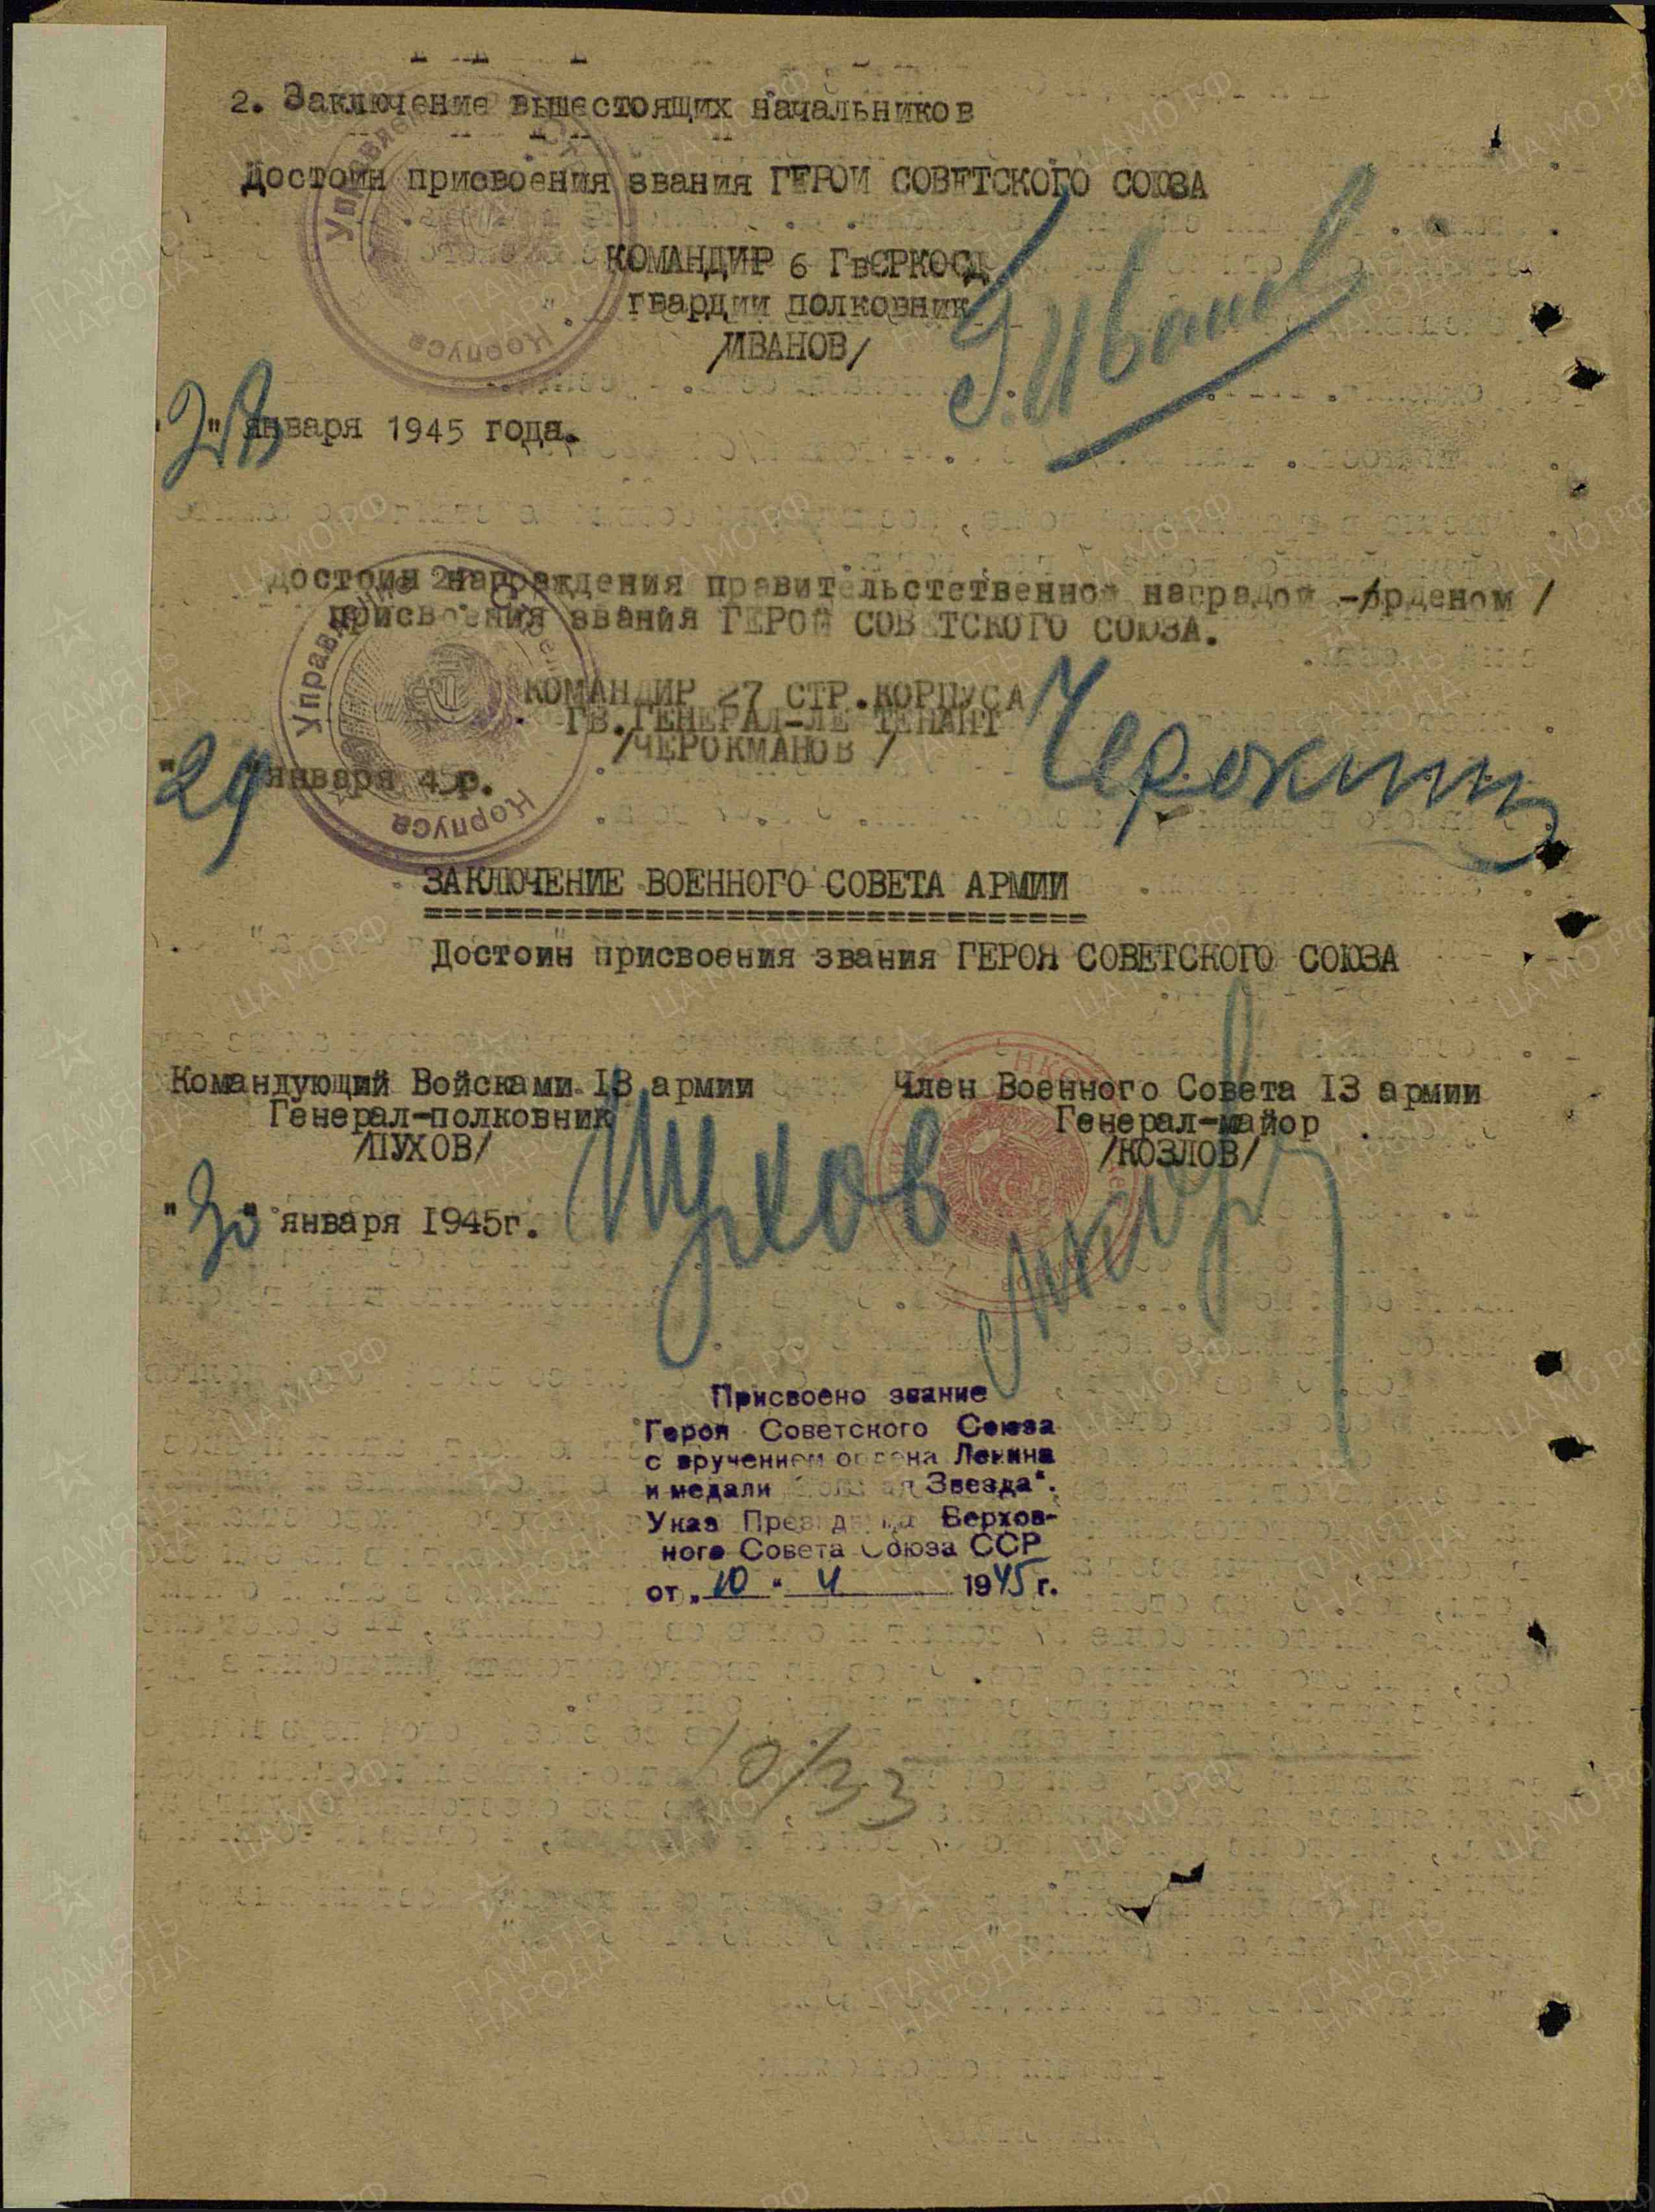 2. Заключение вышестоящих начальников
Достоин присвоения звания ГЕРОЙ СОВЕТСКОГО СОЮЗА
КОМАНДИР 6 ГвСРКОСД
гвардии полковник
/ИВАНОВ/
Г. Иванов
" " января 1945 года.
Достоин награждения правительстственной наградой -/орденом /
присвоения звания ГЕРОЙ СОВЕТСКОГО СОЮЗА.
КОМАНДИР 27 СТР.КОРПУСА
ГВ.ГЕНЕРАЛ-ЛЕ ТЕНАНТ
/ЧЕРОКМАНОВ /
"29" января 45 г.
Управление 27 Стрел
Корпуса
ЗАКЛЮЧЕНИЕ ВОЕННОГО СОВЕТА АРМИИ
Достоин присвоения звания ГЕРОЯ СОВЕТСКОГО СОЮЗА
Командующий Войсками I3 армии
Генерал-полковник
/ПУХОВ/
Пухов
Член Военного Совета I3 армии
Генерал-майор
/КОЗЛОВ/
"30" января I945г.
Присвоено звание
Героя Советского Союза
с вручением ордена Ленина
и медали "Золотая Звезда".
Указ Президиума Верхов-
ного Совета Союза ССР
от "10" 4 1945 г.
10/33
ЦА МО РФ
ПАМЯТЬ
НАРОДА